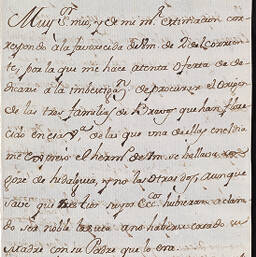 Muy Sr. mio, y de mi mr. estimacion cor
respondo à la favorecida de Vm. de 2 del corrien
te, por la que me hace atenta oferta de de
dicarse à la imbestign. de procurar el origen
de las tres familias de Bravo que han flore
cido en esa va. de las que una de ellas en el dia
me expresò el hermo. de Vm. se hallava en
goze de hidalguia, y no las otras dos, aunque
save que
hubieran aclama
do ser nobles
à no haber casado su
con su Padre que lo era.